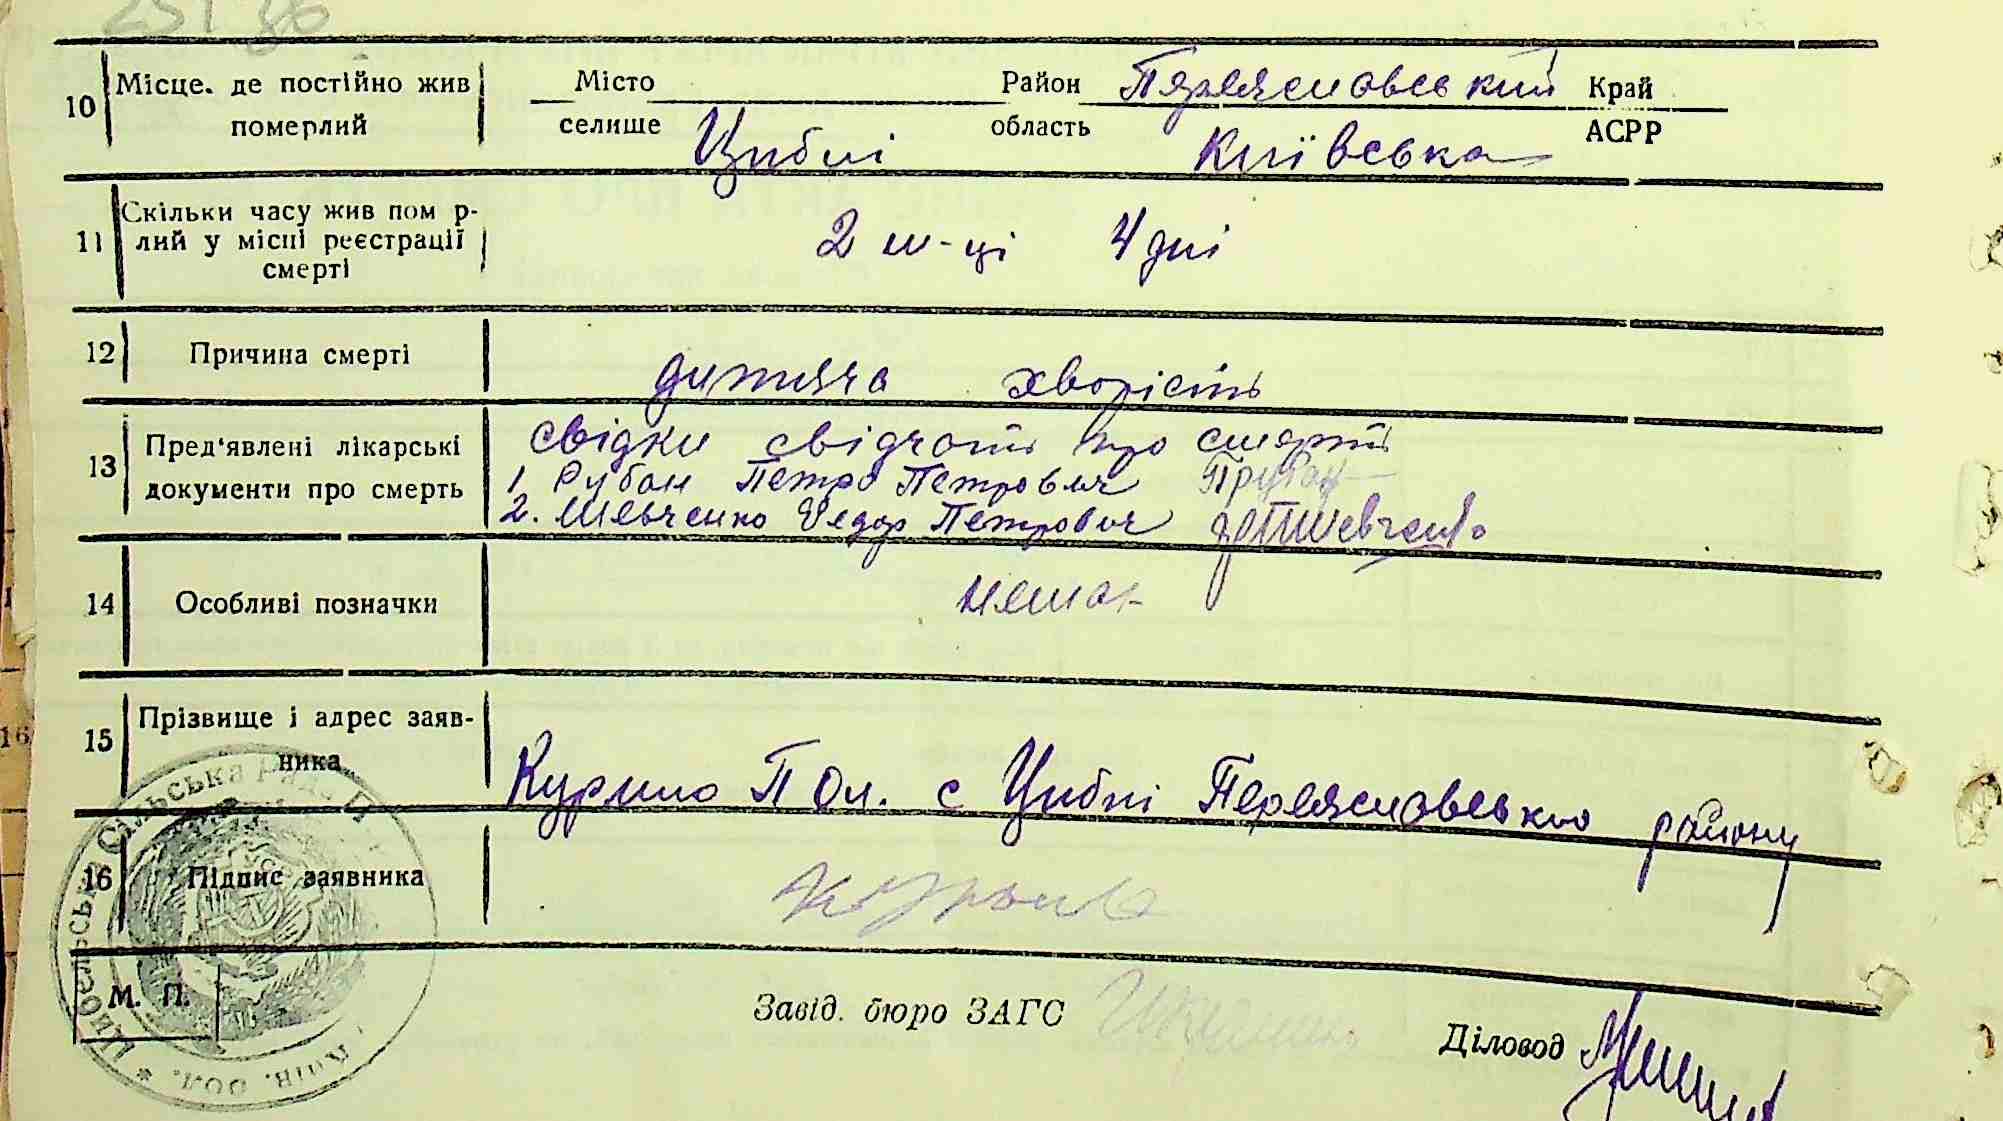 10 Місце. де постійно жив Місто Район Переяславський Край
померлий селише Циблі область Київська АСРР
11 Скільки часу жив пом р-
лий у місці реєстрації 2 м-ці 4 дні
смерті
12 Причина смерті дитяча хворість
13 Пред'явлені лікарські свідки свідчать про смерть
документи про смерть 1 Рубан Петро Петрович ПРубан
2. Шевченко Федор Петрович Шевченко
14 Особливі позначки немає
15 Прізвище і адрес заяв-
ника Курило П Ол. с Циблі Переяславського району
16 Підпис заявника
М. П.
Завід. бюро ЗАГС
Діловод